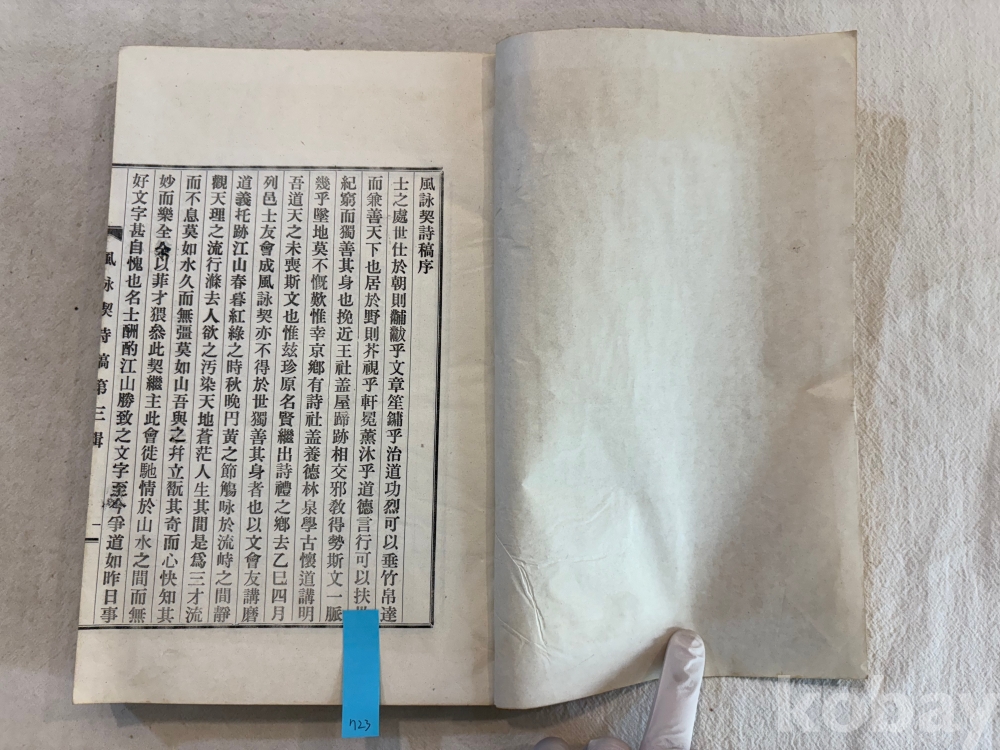 風詠契詩稿序
士之處世仕於朝則黼黻乎文章笙鏞乎治道功烈可以垂竹帛達
而兼善天下也居於野則芥視乎軒冕薰沐乎道德言行可以扶
紀窮而獨善其身也挽近王社盖屋歸跡相交邪敎得勢斯文一脈
幾乎墜地莫不慨歎惟幸京鄉有詩社盖養德林泉學古懷道講明
吾道天之未喪斯文也惟玆珍原名賢繼出詩禮之鄉去乙巳四月
列邑士友會成風詠契亦不得於世獨善其身者也以文會友講磨
道義托跡江山春暮紅綠之時秋晩丹黃之節觴咏於流峙之間靜
觀天理之流行滌去人欲之污染天地蒼茫人生其間是爲三才流
而不息莫如水久而無彊莫如山吾與之幷立翫其奇而心快知其
妙而樂全余以菲才猥叅此契繼主此會徒馳情於山水之間而無
好文字甚自愧也名士酬酌江山勝致之文字至今爭道如昨日事
風詠契詩稿第三輯
一
723
kobay